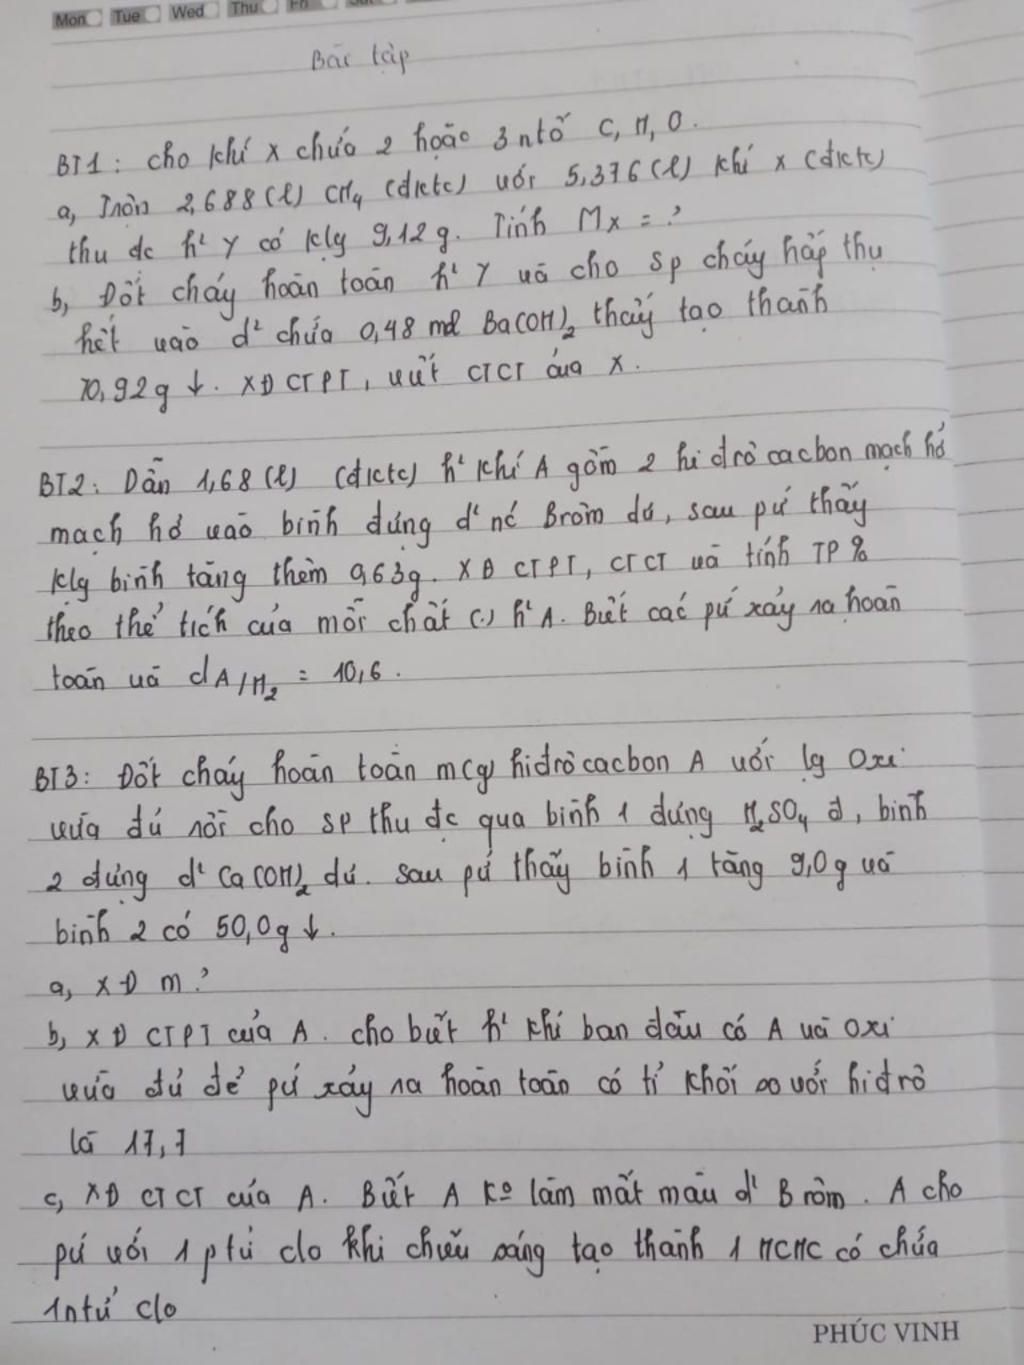 Mon Tue Wed Thu Fri
Bài tập
BT1: cho khí X chứa 2 hoặc 3 ntố C, H, O.
a, Trộn 2,688(l) CH4 (đktc) với 5,376(l) khí X (đktc)
thu đc h² Y có klg 9,12g. Tính Mx = ?
b, Đốt cháy hoàn toàn h² Y và cho sp cháy hấp thụ
hết vào d² chứa 0,48 mol Ba(OH)2 thấy tạo thành
70,92g ↓. XĐ CTPT, viết CTCT của X.
BT2: Dẫn 1,68(l) (đktc) h² khí A gồm 2 hiđrô cacbon mạch hở
mạch hở vào bình đựng d² nc Brôm dư, sau pứ thấy
klg bình tăng thêm 0,63g. XĐ CTPT, CTCT và tính TP%
theo thể tích của mỗi chất (.) h² A. Biết các pứ xảy ra hoàn
toàn và dA/H2 = 10,6.
BT3: Đốt cháy hoàn toàn m(g) hiđrôcacbon A với lg Oxi
vừa đủ rồi cho sp thu đc qua bình 1 đựng H2SO4 đ, bình
2 đựng d² Ca(OH)2 dư. Sau pứ thấy bình 1 tăng 9,0g và
bình 2 có 50,0g ↓.
a, XĐ m?
b, XĐ CTPT của A. Cho biết h² khí ban đầu có A và oxi
vừa đủ để pứ xảy ra hoàn toàn có tỉ khối so với hiđrô
là 17,7
c, XĐ CTCT của A. Biết A ko làm mất màu d² Brôm. A cho
pứ với 1 ptử clo khi chiếu sáng tạo thành 1 HCHC có chứa
1ntử clo
PHÚC VINH